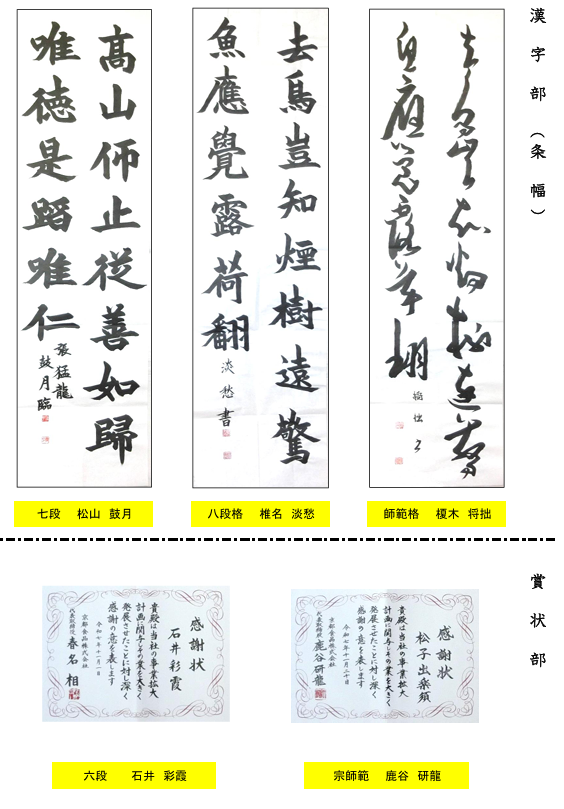 漢字部（条幅）
去鳥豈知煙樹遠驚
魚應覺露荷翻
師範格 榎木 将拙
去鳥豈知煙樹遠驚
魚應覺露荷翻
淡愁書
八段格 椎名 淡愁
高山仰止從善如歸
唯徳是蹈唯仁
張猛龍
鼓月臨
七段 松山 鼓月
賞状部
感謝状
貴殿は当社の事業拡大
計画に関与しその業を大きく
発展させたことに対し深く
感謝の意を表します
令和七年十一月三十日
京都食品株式会社
代表取締役 鹿谷研龍
宗師範 鹿谷 研龍
感謝状
石井彩霞
貴殿は当社の事業拡大
計画に関与しその業を大きく
発展させたことに対し深く
感謝の意を表します
令和七年十一月一日
京都食品株式会社
代表取締役 春名 相
六段 石井 彩霞